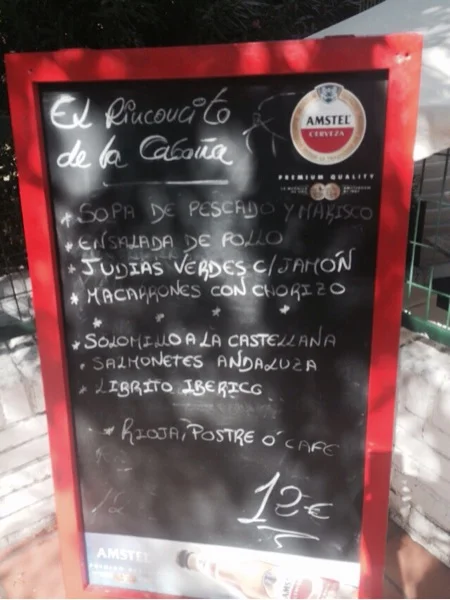 El Rinconcito
de la Cabaña
AMSTEL
CERVEZA
PREMIUM QUALITY
* SOPA DE PESCADO Y MARISCO
* ENSALADA DE POLLO
* JUDIAS VERDES C/JAMÓN
* MACARRONES CON CHORIZO
* * * *
* SOLOMILLO A LA CASTELLANA
. SALMONETES ANDALUZA
. LIBRITO IBERICO
* RIOJA, POSTRE Ó CAFE
12€
AMSTEL
AMSTEL